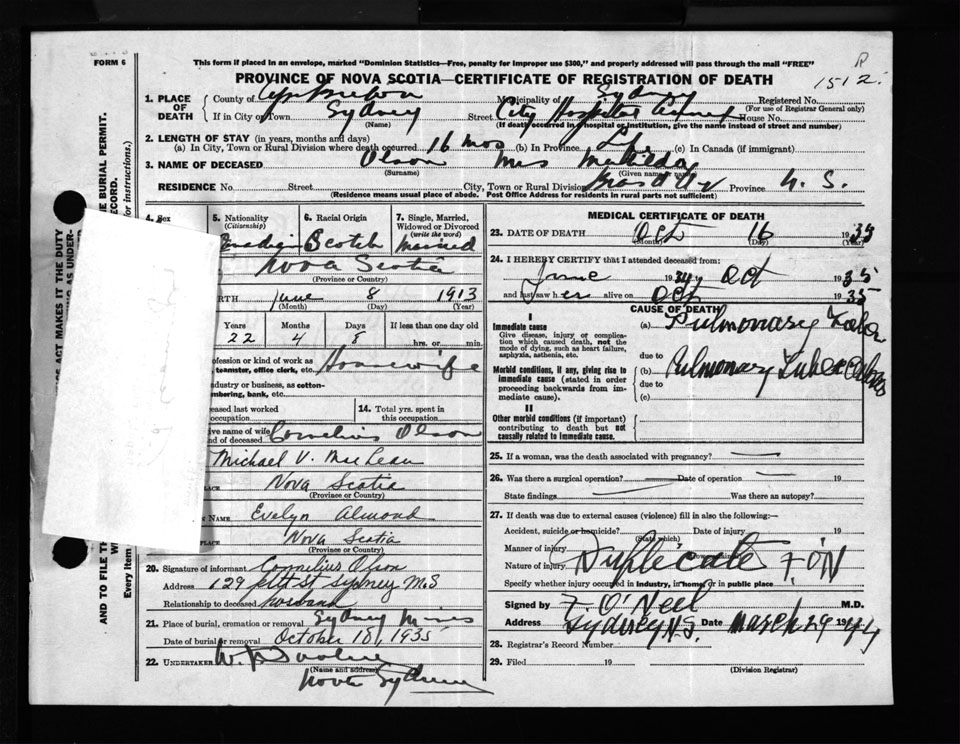 FORM 6
This form if placed in an envelope, marked "Dominion Statistics—Free, penalty for improper use $300," and properly addressed will pass through the mail "FREE"
PROVINCE OF NOVA SCOTIA—CERTIFICATE OF REGISTRATION OF DEATH
1512
1. PLACE OF DEATH
County of Cape Breton Municipality of Sydney Registered No.
(For use of Registrar General only)
If in City or Town Sydney Street City Hospital Annex House No.
(Name) (If death occurred in a hospital or institution, give the name instead of street and number)
2. LENGTH OF STAY (in years, months and days)
(a) In City, Town or Rural Division where death occurred 16 mos (b) In Province (c) In Canada (if immigrant)
3. NAME OF DECEASED Olson Mrs Matilda
(Surname) (Given name or names)
RESIDENCE No. Street City, Town or Rural Division Bras d'Or Province N. S.
(Residence means usual place of abode. Post Office Address for residents in rural parts not sufficient)
4. Sex
5. Nationality (Citizenship)
6. Racial Origin
7. Single, Married, Widowed or Divorced (write the word)
Scotch Married
Nova Scotia
(Province or Country)
June 8 1913
(Month) (Day) (Year)
Years Months Days If less than one day old
22 4 8 hrs. or min.
ofession or kind of work as
teamster, office clerk, etc. Housewife
ndustry or business, as cotton-
mbering, bank, etc.
eased last worked
occupation
14. Total yrs. spent in this occupation
ve name of wife
nd of deceased Cornelius Olson
Michael V. MacLean
Nova Scotia
(Province or Country)
Name Evelyn Almond
Nova Scotia
(Province or Country)
20. Signature of informant Cornelius Olson
Address 129 Pitt St Sydney M.S
Relationship to deceased husband
21. Place of burial, cremation or removal Sydney Mines
Date of burial or removal October 18, 1935
22. UNDERTAKER
(Name and address)
MEDICAL CERTIFICATE OF DEATH
23. DATE OF DEATH Oct 16 1935
(Month) (Day) (Year)
24. I HEREBY CERTIFY that I attended deceased from:
June 1934 Oct 1935
and last saw her alive on Oct 1935
CAUSE OF DEATH
I
Immediate cause
Give disease, injury or complication which caused death, not the mode of dying, such as heart failure, asphyxia, asthenia, etc.
(a) Pulmonary
due to
Morbid conditions, if any, giving rise to immediate cause (stated in order proceeding backwards from immediate cause).
(b) Pulmonary
due to
(c)
II
Other morbid conditions (if important) contributing to death but not causally related to immediate cause.
25. If a woman, was the death associated with pregnancy?
26. Was there a surgical operation? Date of operation 19
State findings Was there an autopsy?
27. If death was due to external causes (violence) fill in also the following:—
Accident, suicide or homicide? Date of injury 19
(State which)
Manner of injury
Nature of injury Duplicate F. O'N
Specify whether injury occurred in industry, in home, or in public place
Signed by F. O'Neil M.D.
Address Sydney N.S. Date March 29 1944
28. Registrar's Record Number
29. Filed 19
(Division Registrar)